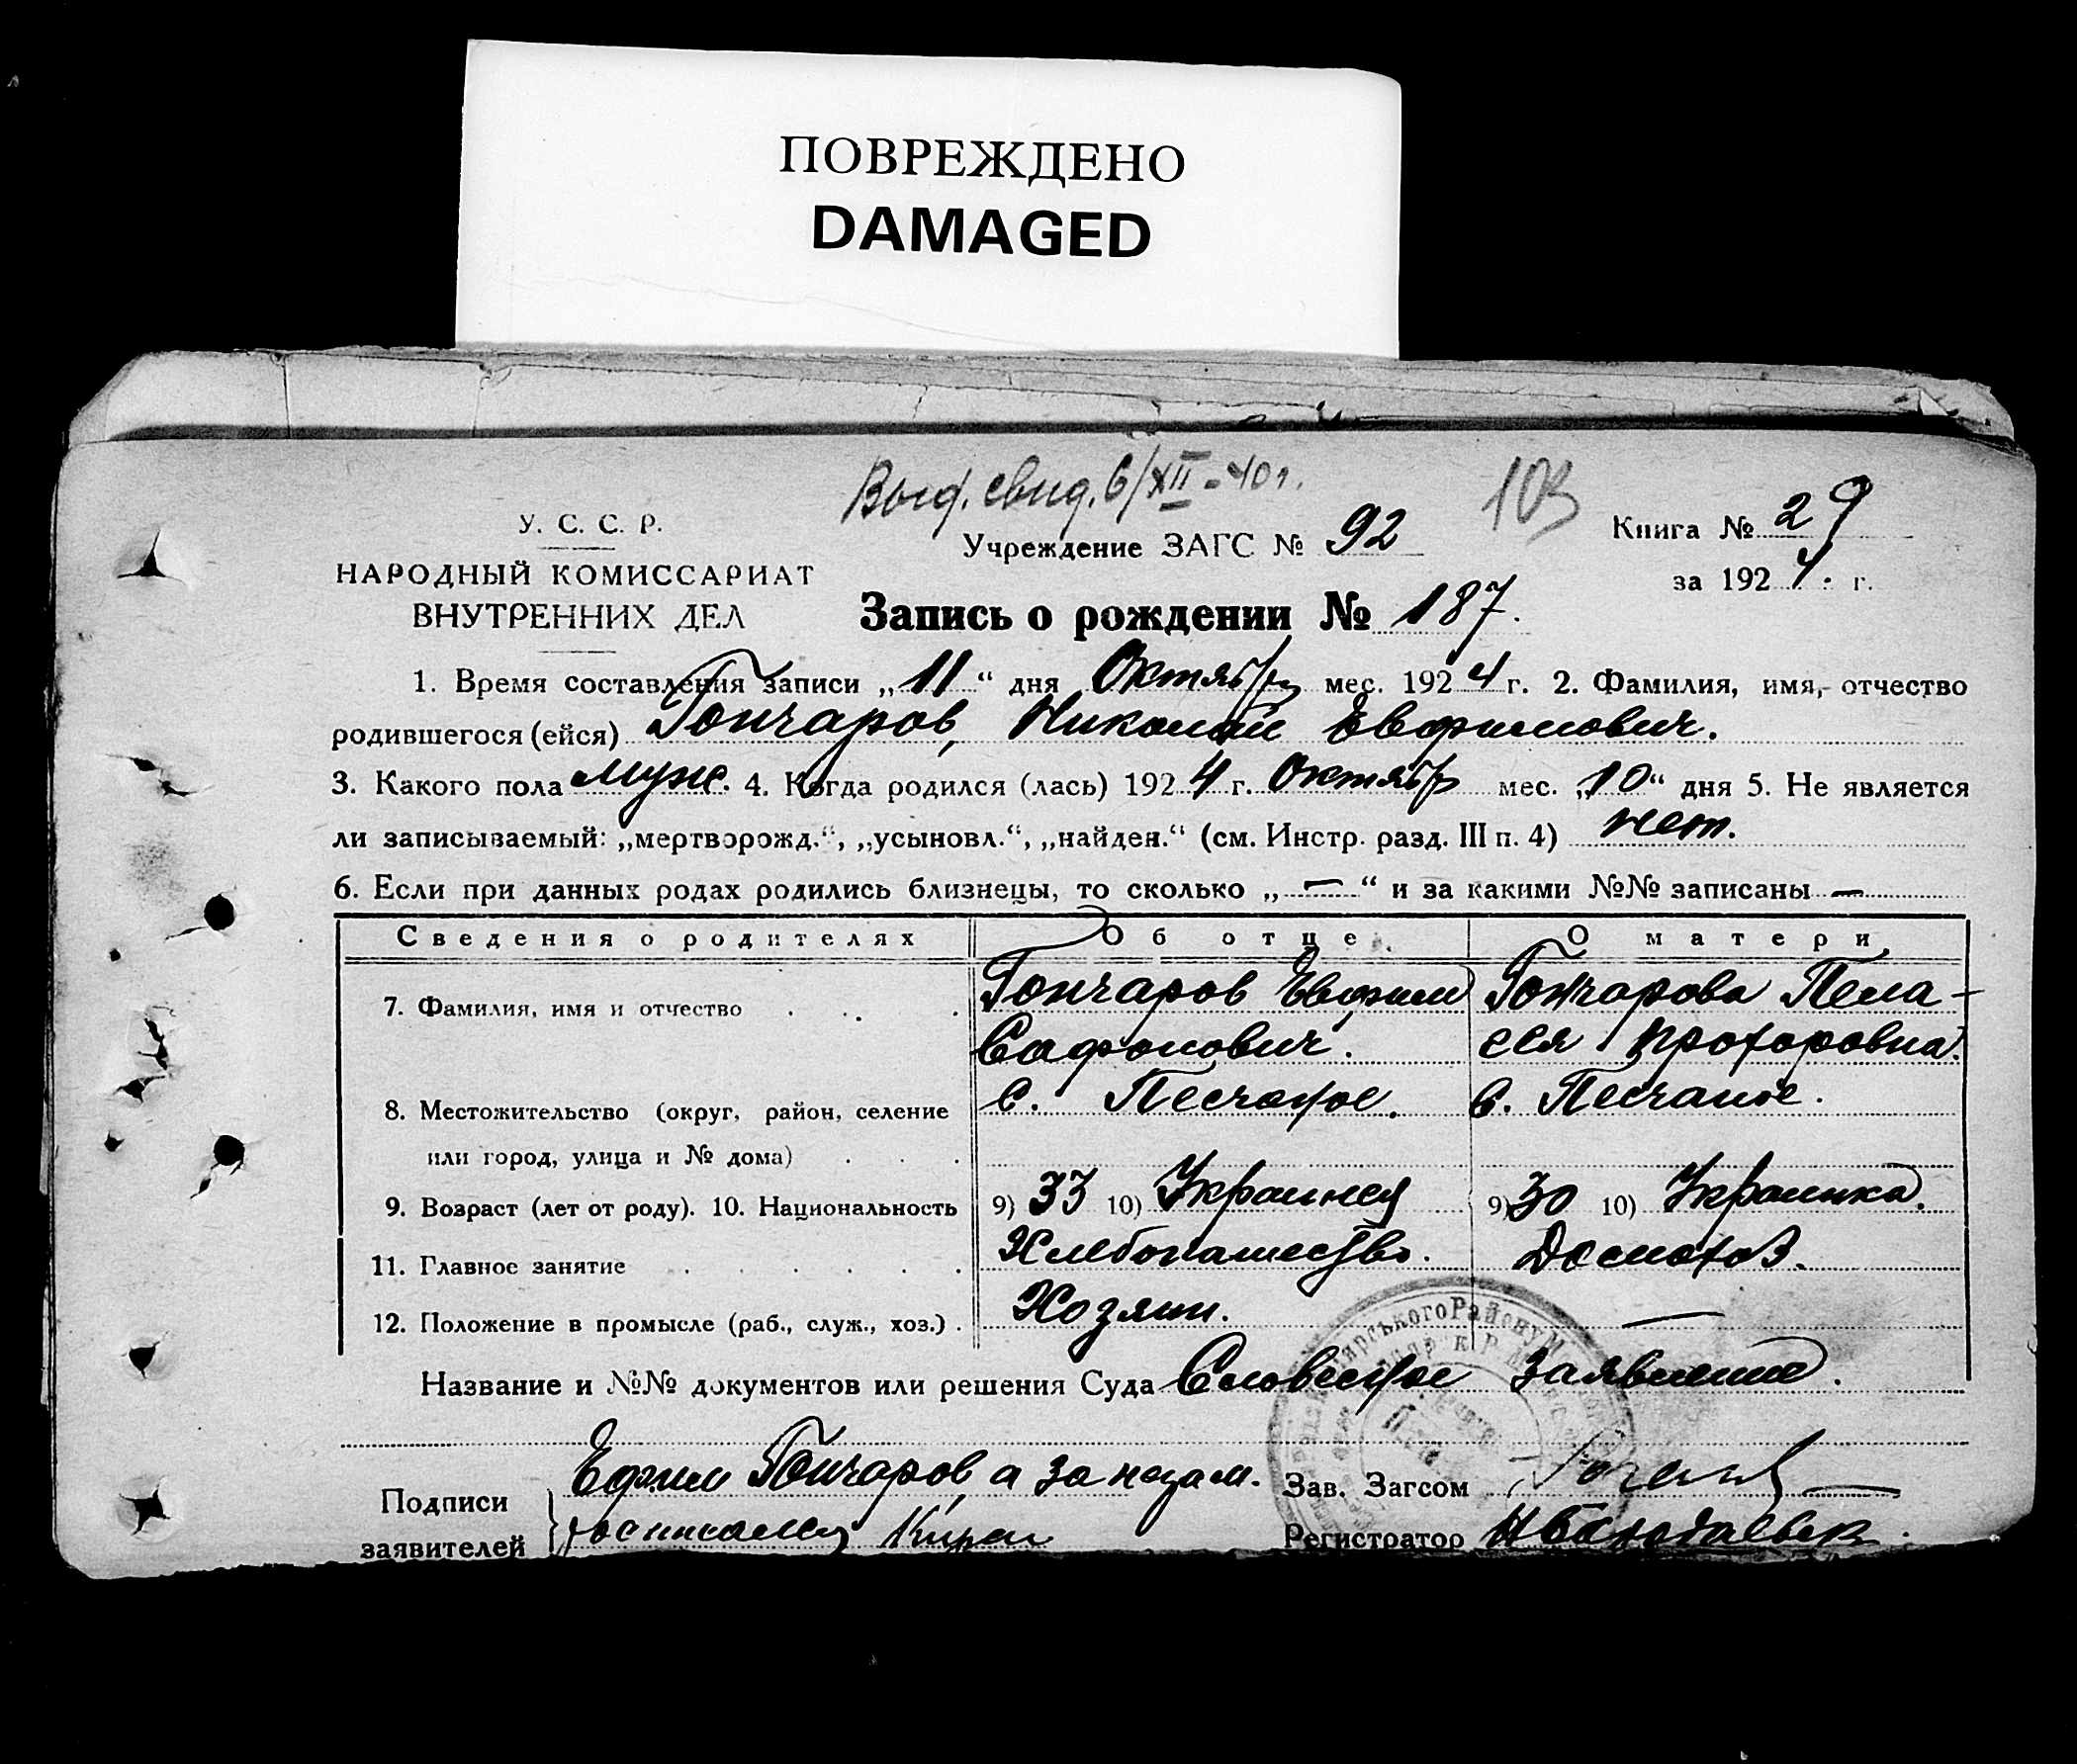 ПОВРЕЖДЕНО
DAMAGED
Выд. свид. 6/XII-40г.
103
У. С. С. Р.
НАРОДНЫЙ КОМИССАРИАТ
ВНУТРЕННИХ ДЕЛ
Учреждение ЗАГС № 92
Книга № 29
за 1924. г.
Запись о рождении № 187.
1. Время составления записи „11“ дня Октября мес. 1924 г. 2. Фамилия, имя, отчество
родившегося (ейся) Гончаров, Николай Евфимович.
3. Какого пола муж. 4. Когда родился (лась) 1924 г. Октябр мес. „10“ дня 5. Не является
ли записываемый: „мертворожд.“, „усыновл.“, „найден.“ (см. Инстр. разд. III п. 4) нет.
6. Если при данных родах родились близнецы, то сколько „—“ и за какими №№ записаны —
Сведения о родителях Об отце О матери
7. Фамилия, имя и отчество Гончаров Евфим Гончарова Пела-
Сафонович. гея Прохоровна.
8. Местожительство (округ, район, селение с. Песчаное. с. Песчаное.
или город, улица и № дома)
9. Возраст (лет от роду). 10. Национальность 9) 33 10) Украинец 9) 30 10) Украинка.
11. Главное занятие Хлебопашество. Домохоз.
12. Положение в промысле (раб., служ., хоз.) Хозяин. —
Название и №№ документов или решения Суда Словесное заявление.
Подписи
заявителей
Ефим Гончаров, а за негом.
росписался
Зав. Загсом
Регистратор